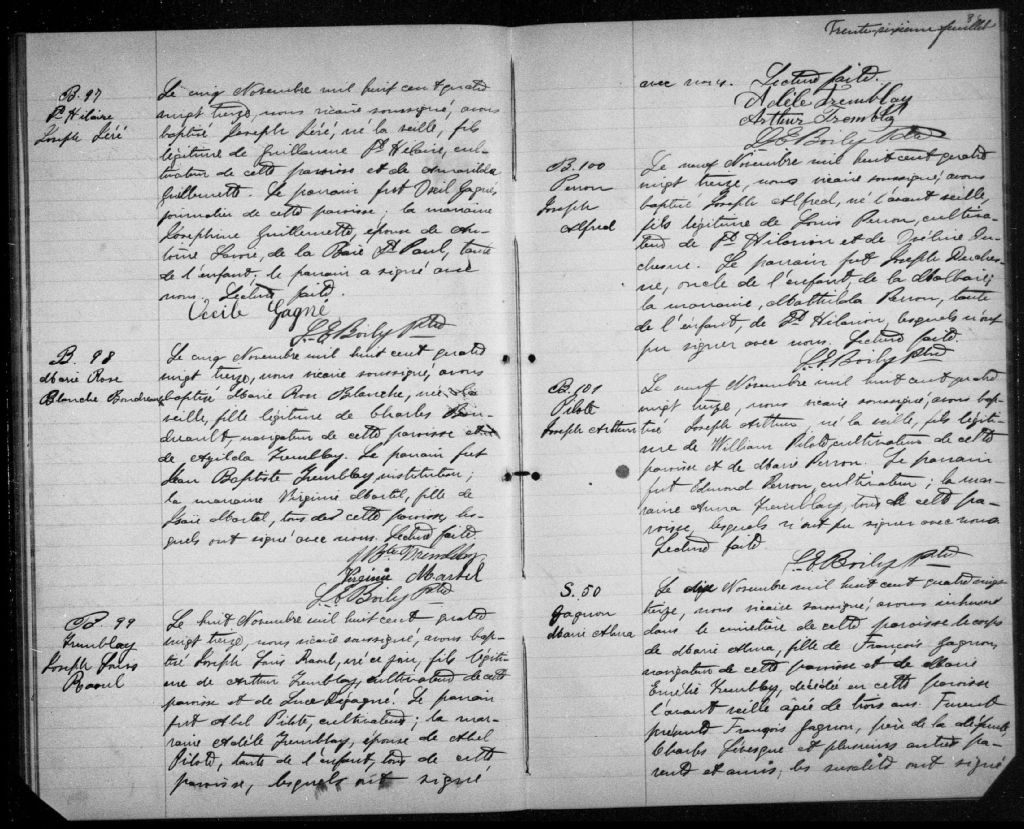 B. 97
St Hilaire
Joseph Léré
Le cinq Novembre mil huit cent quatre
vingt treize, nous vicaire soussigné, avons
baptisé Joseph Léré, né la veille, fils
légitime de Guillaume St Hilaire, cul-
tivateur de cette paroisse et de
Guillemette. Le parrain fut Gagné,
journalier de cette paroisse; la marraine
Joséphine Guillemette, épouse de An-
toine Lavoie, de la Baie St Paul, tante
de l'enfant. le parrain a signé avec
nous. Lecture faite.
Cécile Gagné
L. E. Boily Ptre
B. 98
Marie Rose
Blanche Boudreault
Le cinq Novembre mil huit cent quatre
vingt treize, nous vicaire soussigné, avons
baptisé Marie Rose Blanche, née la
veille, fille légitime de Charles Bou-
dreault, navigateur de cette paroisse et
de Azilda Tremblay. Le parrain fut
Jean Baptiste Tremblay, instituteur;
la marraine Virginie Martel, fille de
Isaïe Martel, tous de cette paroisse, les-
quels ont signé avec nous. Lecture faite.
J Bte Tremblay
Virginie Martel
L. E. Boily Ptre
B. 99
Tremblay
Joseph Louis
Raoul
Le huit Novembre mil huit cent quatre
vingt treize, nous vicaire soussigné, avons bap-
tisé Joseph Louis Raoul, né ce jour, fils légiti-
me de Arthur Tremblay, cultivateur de cette
paroisse et de Luce Dégagné. Le parrain
fut Abel Pilote, cultivateur; la mar-
raine Adèle Tremblay, épouse de Abel
Pilote, tante de l'enfant, tous de cette
paroisse, lesquels ont signé
Trente-sixième feuillet
avec nous. Lecture faite.
Adèle Tremblay
Arthur Tremblay
L. E. Boily Ptre
B. 100
Perron
Joseph
Alfred
Le neuf Novembre mil huit cent quatre
vingt treize, nous vicaire soussigné, avons
baptisé Joseph Alfred, né l'avant veille,
fils légitime de Louis Perron, cultiva-
teur de St Hilarion et de Zéline Du-
chesne. Le parrain fut Joseph Duches-
ne, oncle de l'enfant, de la Malbaie;
la marraine, Mathilda Perron, tante
de l'enfant, de St Hilarion, lesquels n'ont
pu signer avec nous. Lecture faite.
L. E. Boily Ptre
B. 101
Pilote
Joseph Arthur
Le neuf Novembre mil huit cent quatre
vingt treize, nous vicaire soussigné, avons bap-
tisé Joseph Arthur, né la veille, fils légiti-
me de William Pilote, cultivateur de cette
paroisse et de Marie Perron. Le parrain
fut Edmond Perron, cultivateur; la mar-
raine Anna Tremblay, tous de cette pa-
roisse, lesquels n'ont pu signer avec nous.
Lecture faite.
L. E. Boily Ptre
S. 50
Gagnon
Marie Alma
Le dix Novembre mil huit cent quatre vingt
treize, nous vicaire soussigné, avons inhumé
dans le cimetière de cette paroisse le corps
de Marie Alma, fille de François Gagnon,
navigateur de cette paroisse et de Marie
Emélie Tremblay, décédée en cette paroisse
l'avant veille âgée de trois ans. Furent
présents François Gagnon, père de la défunte,
Charles Lévesque et plusieurs autres pa-
rents et amis, les susdits ont signé